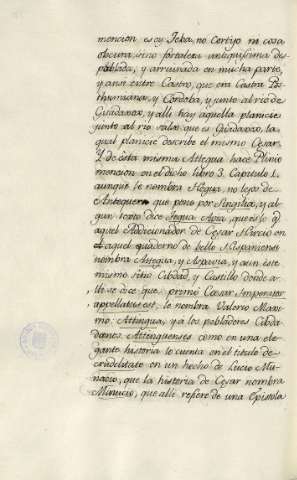 mencion es oy Teba, no Cortijo ni cosa
obscura, sino fortaleza antiquissima des-
poblada, y arruinada en mucha parte,
y ansi entre Castro, que era Castra Pos-
thumiana, y Cordoba, y junto al rio de
Guadaxox, y alli hay aquella planicie
junto al rio Salso que es Guadaxox, la
qual planicie describe el mismo Cesar,
Y de esta misma Attegua hace Plinio
mencion en el dicho libro 3. Capitulo 1.
aunque le nombra Hegua no lejos de
Antequera que puso por Singilia, y al-
gun texto dice Tegua Apia, que es lo q.
aquel Adicionador de Cesar Hircio en
el aquel quaderno de bello Hispaniense
nombra Attegua, y Aspavia, y aun este
mismo sitio Cibdad, y Castillo donde a-
lli se dice que primo Cæsar Imperator
appellatus est, le nombra Valerio Maxi-
mo Attingua, y a los pobladores Cibda-
danos Attinguenses como en una ele-
gante historia lo cuenta en el titulo de
crudelitate en un hecho de Lucio Mu-
nacio, que la historia de Cesar nombra
Minucio, que alli refiere de una Epistola